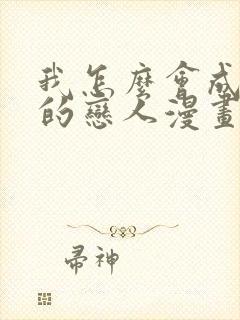 我怎麼會成
的戀人漫畫
帚神